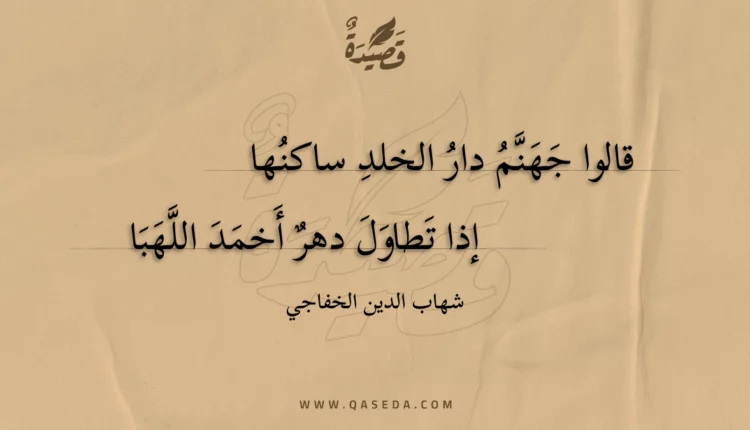 قَصِيدَةٌ
قالوا جَهَنَّمُ دارُ الخلدِ ساكنُها
إذا تَطاوَلَ دهرٌ أَخمَدَ اللَّهَبَا
شهاب الدين الخفاجي
WWW.QASEDA.COM